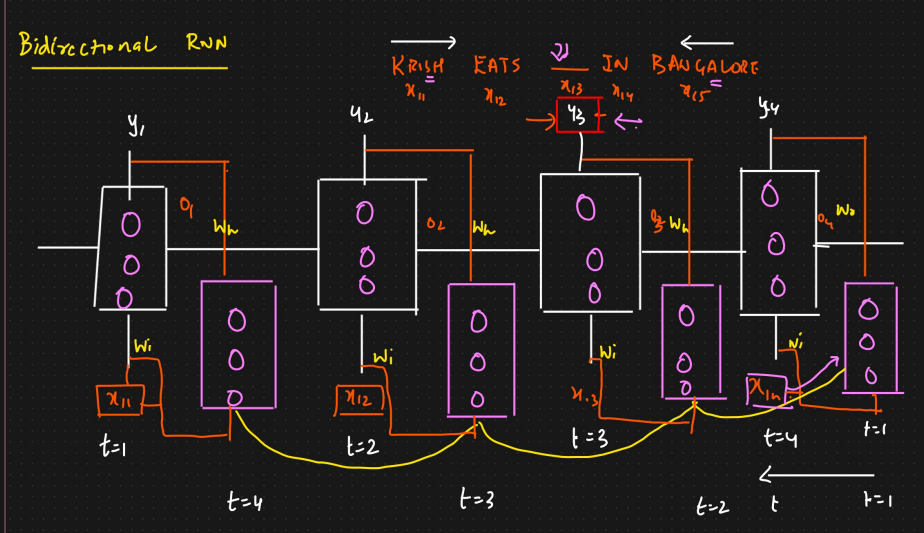 Bidirectional RNN
KRISH EATS ___ IN BANGALORE
x11 x12 x13 x14 x15
y1 y2 y3 y4
O1 O2 O3 O4
Wh Wh Wh
Wi Wi Wi Wi
x11 x12 x13 x1n
t=1 t=2 t=3 t=4 t=1
t=4 t=3 t=2 t t=1